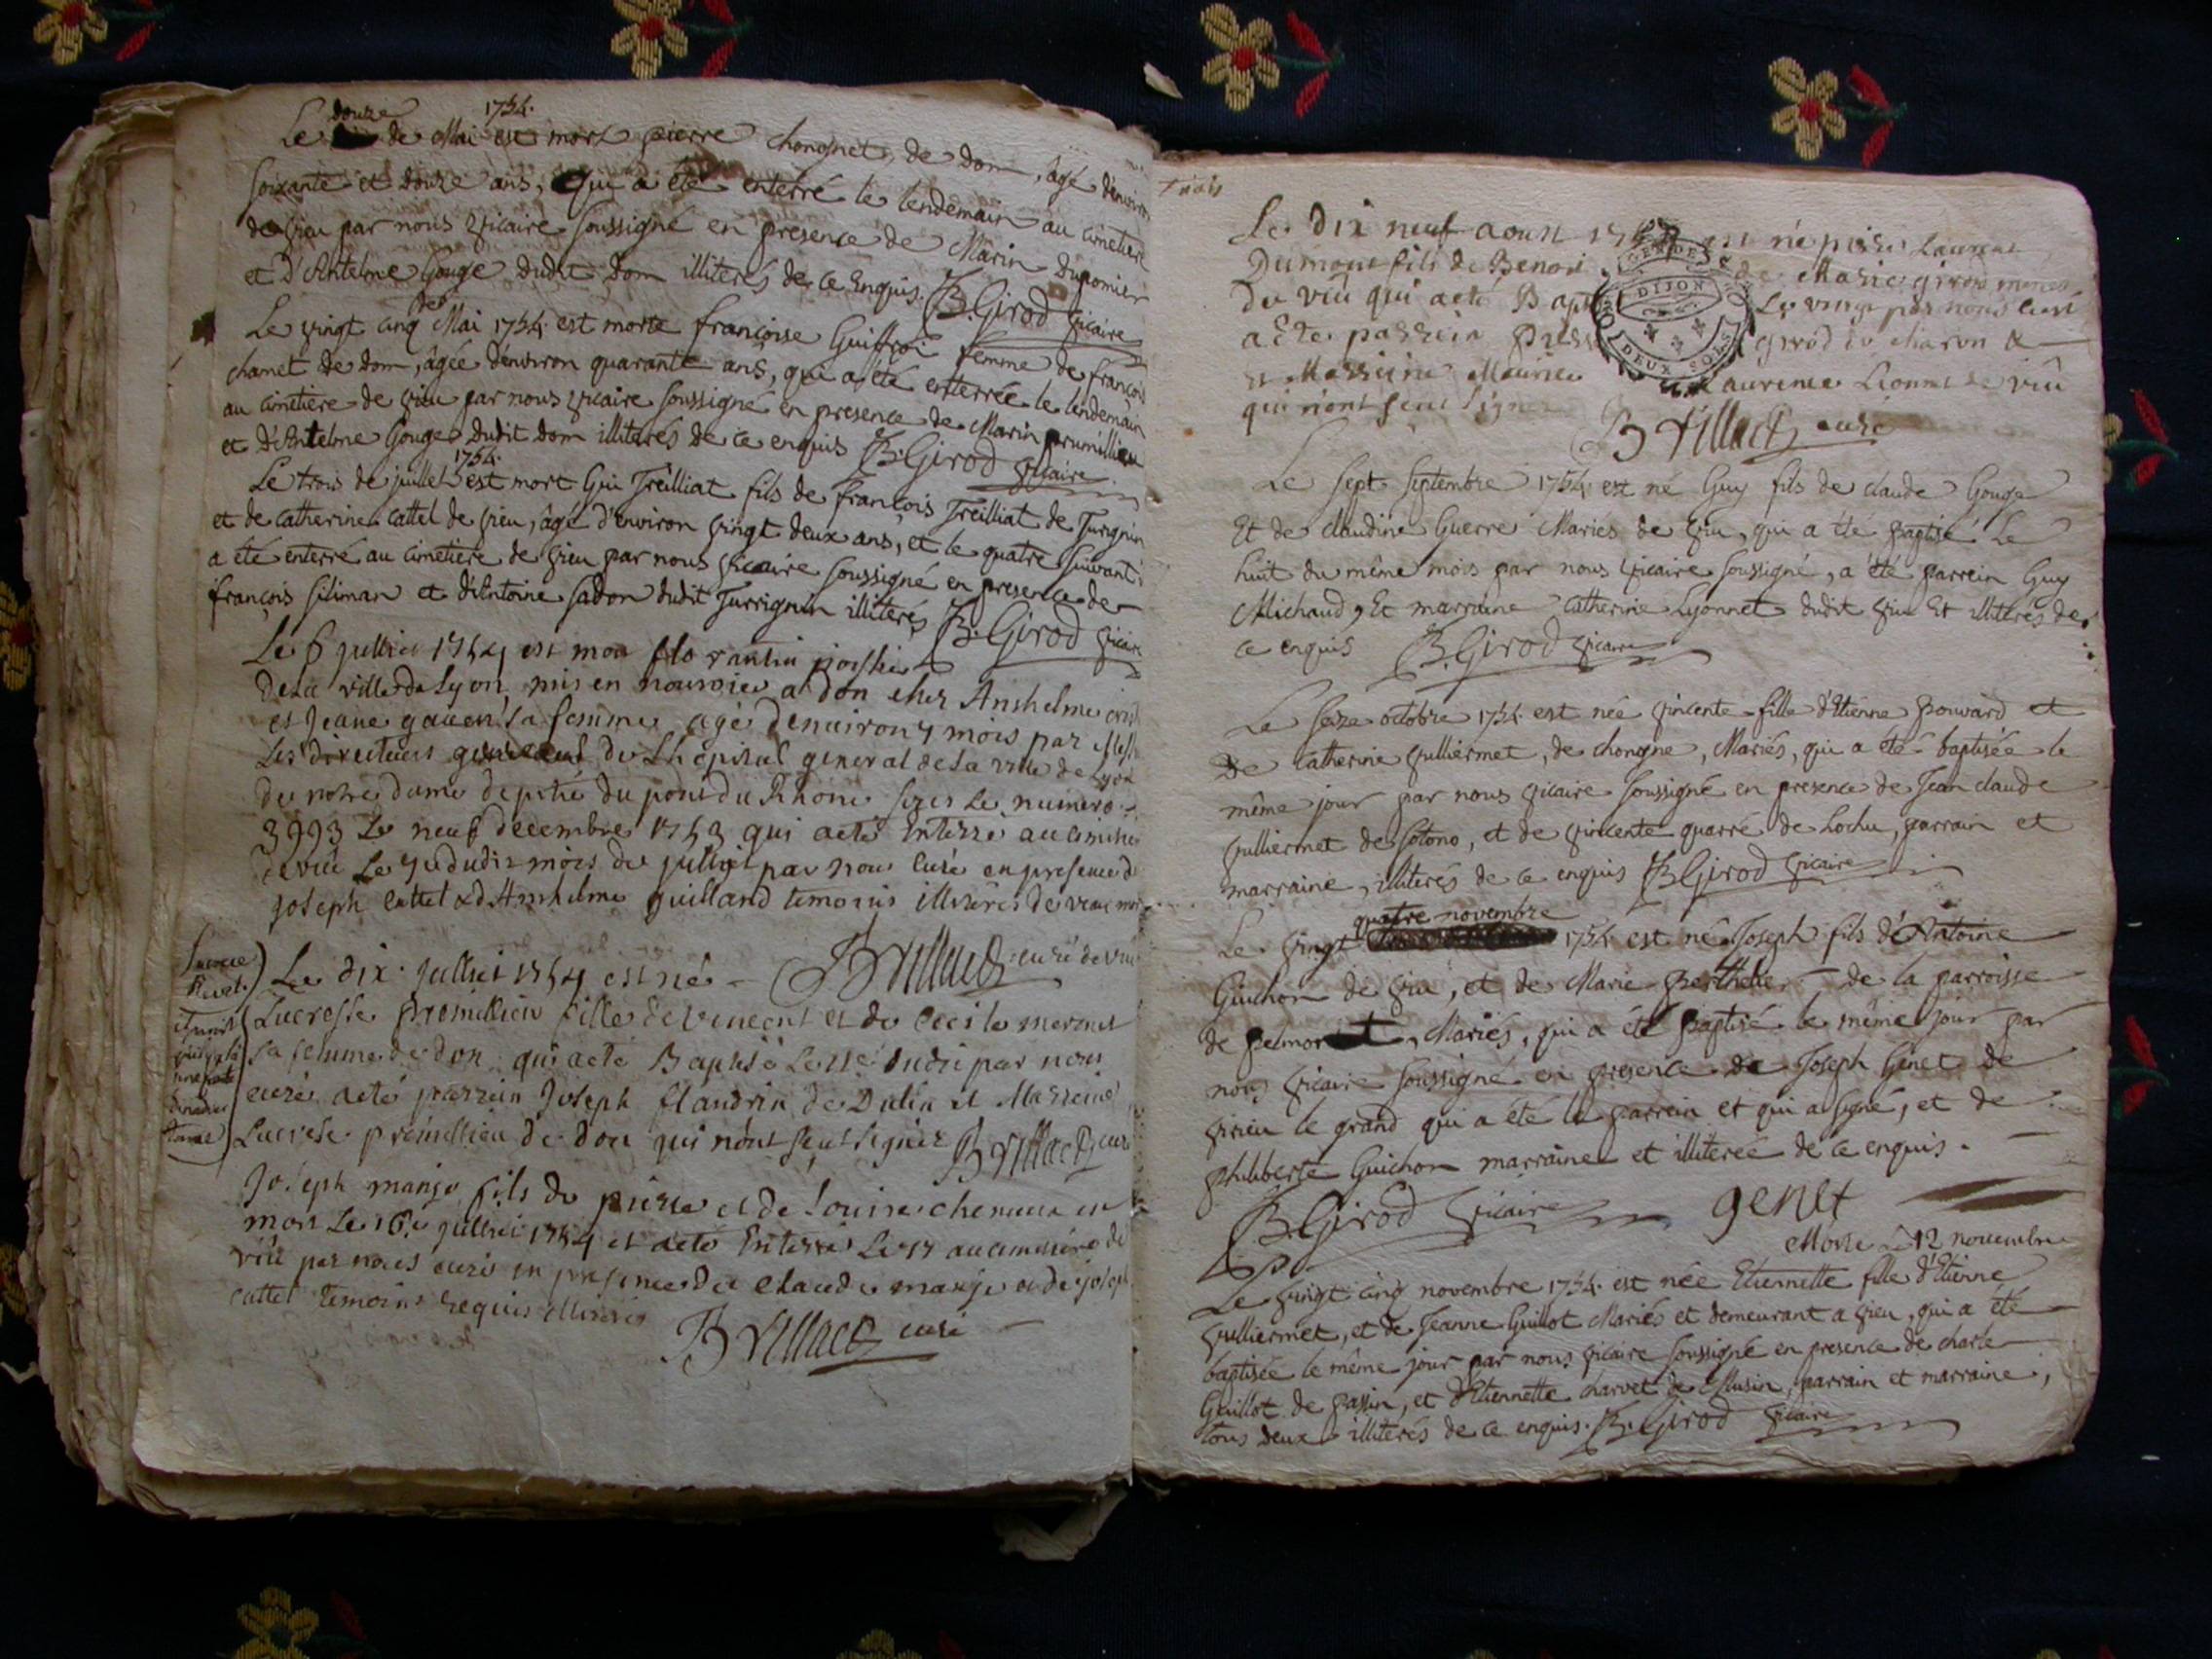 Le douze de Mai 1754. est mort pierre chongnet, de dom, âgé d'environ
soixante et douze ans, qui a été enterré le lendemain au cimetiere
de vieu par nous vicaire soussigné en presence de Marin dupomier
et d'Antelme Gouge dudit dom illiterés de ce enquis. B. Girod vicaire
Le vingt cinq de Mai 1754. est morte françoise Guiffroi femme de françois
chamet de dom, âgée d'environ quarante ans, qui a été enterrée le lendemain
au cimetiere de vieu par nous vicaire soussigné en presence de Marin prumillieu
et d'Antelme Gouge dudit dom illiterés de ce enquis B. Girod vicaire
Le trois de juillet 1754. est mort Gui Treilliat fils de françois Treilliat de Turgnin
et de catherine cattel de vieu, âgé d'environ vingt deux ans, et le quatre suivant
a été enterré au cimetiere de vieu par nous vicaire soussigné en presence de
françois siliman et d'Antoine sadon dudit Turrignin illiterés B. Girod vicaire
Le 6 jullier 1754 est mon
de la ville de Lyon, mis en nourrice a don cher Anshelme
et Jeane sa femme agé denuiron 4 mois par
Les directeurs du Lhopital general de La ville de Lyon
de notre dame de pitié du pont du Rhone sous Le numero
3993 Le neuf decembre 1753 qui aeté Enterré au
de viû Le dudit mois de jullier par nous curé en presence de
joseph cattel & d'Anshelme guilland temoins illiterés
B Villacd curé de viu
Le dix jullier 1754 est né
Lucresse promillieu fille de vincent et de Cecile mermet
sa femme de don qui aeté Baptisé Le dudit par nous
curé aeté parrein Joseph flandrin de Dulin et Marreine
Lucresse promillieu de don qui nônt sçeut signer B Villacd curé
Joseph manje fils de pierre et de Louise
mort Le 16e jullier 1754 et aeté Enterré Le 17 au cimetiere de
viû par nous curé en presence de claude manje et de joseph
cattel temoins requis illiterés
B Villacd curé
trois
Le dix neuf aoust 175 est né pierre Laurent
Dumont fils de Benoit de Marie girod mariés
de viû qui aeté Bapt Le vingt par nous curé
aEte parrein girod de charon &
et Marreine Laurence Lionnet de viû
qui n'ont sceut signer
B Villacd curé
Le sept septembre 1754. est né Guy fils de claude Gouge
Et de claudine Guerre Mariés de viu, qui a été baptisé Le
huit du même mois par nous vicaire soussigné, a été parrein Guy
Michaud, Et marraine catherine Lyonnet dudit viu Et illiterés de
ce enquis B. Girod vicaire
Le seize octobre 1754. est née vincente fille d'Etienne pouvard et
De catherine vulliermet, de chongne, Mariés, qui a été baptisée le
même jour par nous vicaire soussigné en presence de Jean claude
vulliermet de sotono, et de vincente quarré de Lochu, parrain et
marraine, illiterés de ce enquis B. Girod vicaire
Le vingt quatre novembre 1754 est né Joseph fils d'Antoine
Guichon de viu, et de Marie Berthelier de la parroisse
de Belmont, Mariés, qui a été baptisé le même jour par
nous vicaire soussigné en presence de Joseph Genet de
virieu le grand qui a été le parrein et qui a signé, et de
philiberte Guichon marraine et illiterée de ce enquis.
B. Girod vicaire genet
Morte Le 12 novembre
Le vingt cinq novembre 1754. est née Etiennette fille d'Etienne
vulliermet, et de Jeanne Guillot Mariés et demeurant a vieu, qui a été
baptisée le même jour par nous vicaire soussigné en presence de charle
Guillot de passin, et d'Etiennette charvet de Musin, parrain et marraine,
tous deux illiterés de ce enquis. B. Girod vicaire